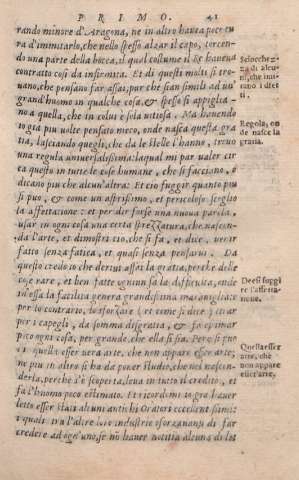 PRIMO. 41
rando minore d'Aragona, ne in altro haueа poсе cu
ra d'imitarlo, che nello spesso alzar il capo, torcen-
do una parte della bocca, il qual costume il Re haueua
contratto cosi da infirmita. Et di questi molti si tro-
uano, che pensano far assai, pur che sian simili ad un'
grand'huomo in qualche cosa, & spesso si appiglia-
no a quella, che in colui e sola uitiosa. Ma hauendo
io gia piu uolte pensato meco, onde nasca questa gra
tia, lasciando quegli, che da le stelle l'hanno, trouo
una regula uniuersalissima: laqual mi par ualer cir
ca questo in tutte le cose humane, che si facciano, o
dicano piu che alcun'altra: Et cio fuggir quanto piu
si puo, & come un asprissimo, et pericoloso scoglio
la affettatione: et per dir forse una noua parola,
usar in ogni cosa una certa sprezzatura, che nascon-
da l'arte, et dimostri cio, che si fa, et dice, uenir
fatto senza fatica, et quasi senza pensarui. Da
questo credo io che deriui assai la gratia, perche delle
cose rare, et ben fatte ogniun sa la difficulta, onde
in essa la facilita genera grandissima marauiglia: et
per lo contrario, lo sforzare (et come si dice) tirar
per i capegli, da somma disgratia, & fa estimar
poco ogni cosa, per grande, che ella si sia. Pero si puo
quella esser uera arte, che non appare esser arte;
ne piu in altro si ha da poner studio, che nel nascon-
derla, perche s'è scoperta, leua in tutto il credito, et
fa l'huomo poco estimato. Et ricordomi io gia hauer
letto esser stati alcuni antichi Oratori eccellentissimi:
i quali tra l'altre loro industrie sforzauansi di far
credere ad ogn'uno, se non hauer notitia alcuna di let
Sciocchez
za di alcu
ni, che imi
tano i difet
ti.
Regola, on
de nasce la
gratia.
Deesi fuggi
re l'affetta-
tione.
Quella esser
arte, che
non appare
esser arte.